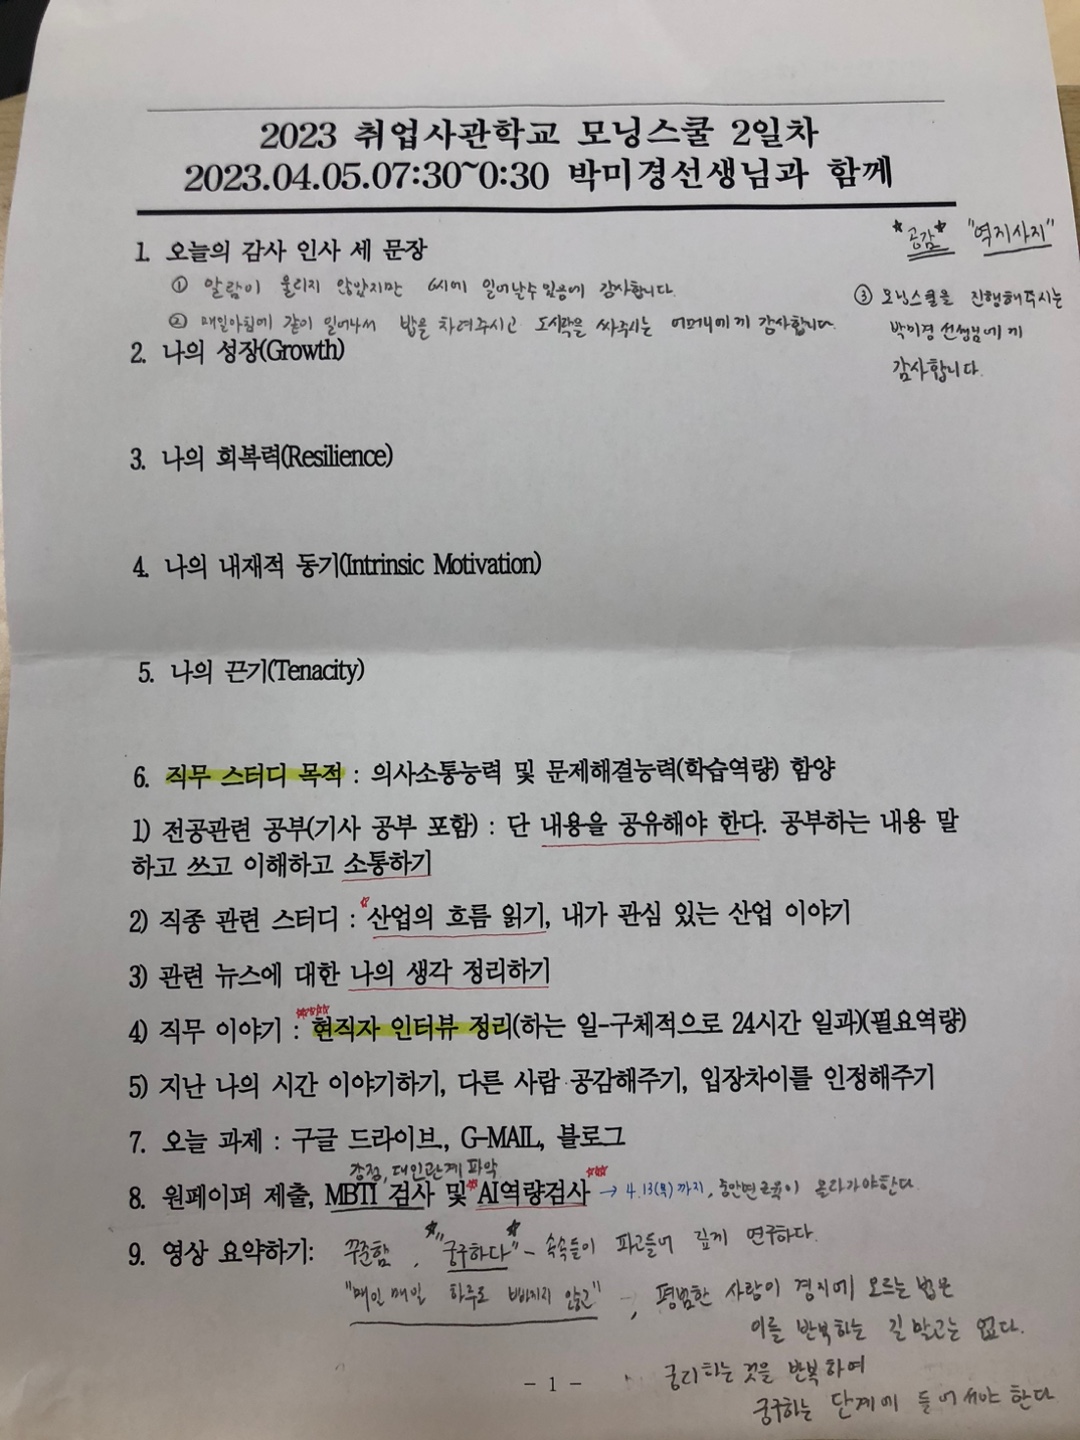 2023 취업사관학교 모닝스쿨 2일차
2023.04.05.07:30~0:30 박미경선생님과 함께
*공감* "역지사지"
1. 오늘의 감사 인사 세 문장
① 알람이 울리지 않았지만 6시에 일어날수있음에 감사합니다.
② 매일아침에 같이 일어나서 밥을 차려주시고 도시락을 싸주시는 어머니에게 감사합니다.
③ 모닝스쿨을 진행해주시는
박미경 선생님에게
감사합니다.
2. 나의 성장(Growth)
3. 나의 회복력(Resilience)
4. 나의 내재적 동기(Intrinsic Motivation)
5. 나의 끈기(Tenacity)
6. 직무 스터디 목적 : 의사소통능력 및 문제해결능력(학습역량) 함양
1) 전공관련 공부(기사 공부 포함) : 단 내용을 공유해야 한다. 공부하는 내용 말
하고 쓰고 이해하고 소통하기
2) 직종 관련 스터디 : 산업의 흐름 읽기, 내가 관심 있는 산업 이야기
3) 관련 뉴스에 대한 나의 생각 정리하기
4) 직무 이야기 : 현직자 인터뷰 정리(하는 일-구체적으로 24시간 일과)(필요역량)
5) 지난 나의 시간 이야기하기, 다른 사람 공감해주기, 입장차이를 인정해주기
7. 오늘 과제 : 구글 드라이브, G-MAIL, 블로그
강점, 대인관계 파악
8. 원페이퍼 제출, MBTI 검사 및 AI역량검사 → 4.13(목)까지, 올라가야한다.
9. 영상 요약하기: 꾸준함, "궁구하다" - 속속들이 파고들어 깊게 연구하다.
"매일 매일 하루도 빠지지 않고", 평범한 사람이 경지에 오르는 법은
이를 반복하는 길 말고는 없다.
궁리하는 것을 반복하여
궁구하는 단계에 들어서야 한다
- 1 -